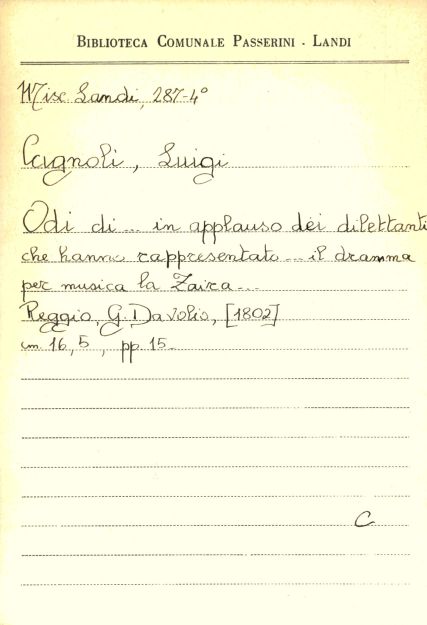 BIBLIOTECA COMUNALE PASSERINI - LANDI
Misc Landi, 287-4°
Cagnoli, Luigi
Odi di ... in applauso dei dilettanti
che hanno rappresentato ... il dramma
per musica la Zaira ...
Reggio, G. Davolio, [1802]
cm. 16,5, pp. 15.
C